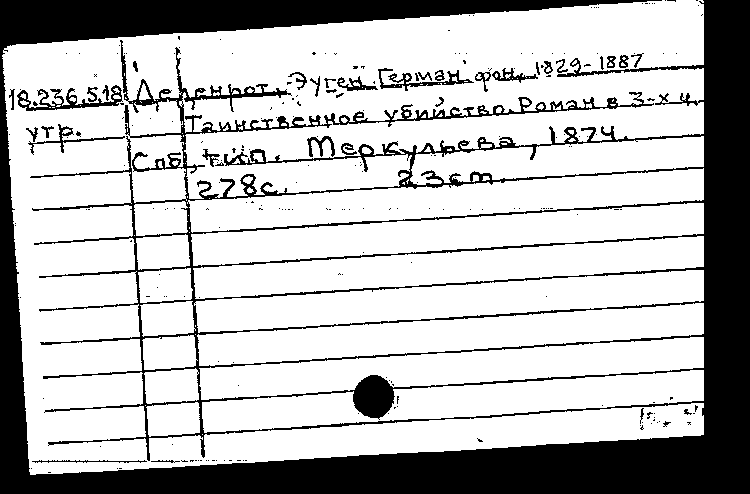 18.236.5.18 Деденрот, Эуген Герман фон, 1829-1887
утр. Таинственное убийство. Роман в 3-х ч.
Спб, тип. Меркульева, 1874.
278с. 23cm.